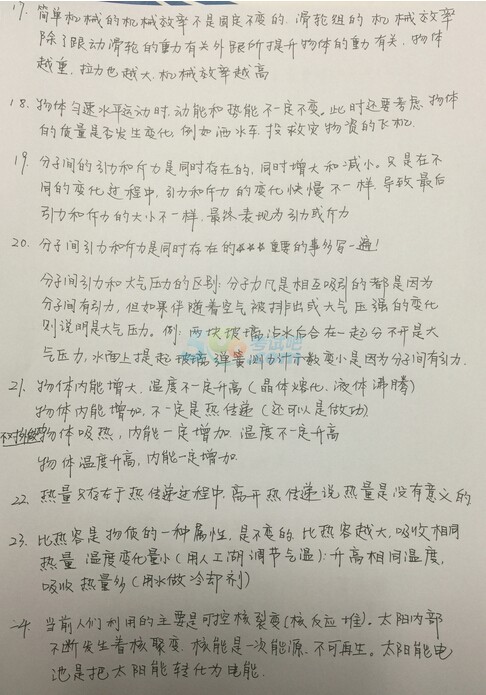 17. 简单机械的机械效率不是固定不变的. 滑轮组的机械效率
除了跟动滑轮的重力有关外跟所提升物体的重力有关, 物体
越重, 拉力也越大, 机械效率越高
18. 物体匀速水平运动时, 动能和势能不一定不变。此时还要考虑物体
的质量是否发生变化, 例如洒水车, 投救灾物资的飞机.
19. 分子间的引力和斥力是同时存在的, 同时增大和减小。只是在不
同的变化过程中, 引力和斥力的变化快慢不一样, 导致最后
引力和斥力的大小不一样, 最终表现为引力或斥力
20. 分子间引力和斥力是同时存在的 重要的事多写一遍!
分子间引力和大气压力的区别: 分子力凡是相互吸引的都是因为
分子间有引力, 但如果伴随着空气被排出或大气压强的变化
则说明是大气压力。例: 两块玻璃沾水后合在一起分不开是大
气压力, 水面上提起玻璃弹簧测力计示数变小是因为分子间有引力.
21. 物体内能增大, 温度不一定升高 (晶体熔化, 液体沸腾)
物体内能增加, 不一定是热传递 (还可以是做功)
物体吸热, 内能一定增加. 温度不一定升高
物体温度升高, 内能一定增加.
22. 热量只存在于热传递过程中, 离开热传递说热量是没有意义的
23. 比热容是物质的一种属性, 是不变的. 比热容越大, 吸收相同
热量 温度变化量小 (用人工湖调节气温); 升高相同温度,
吸收热量多 (用水做冷却剂)
24 当前人们利用的主要是可控核裂变 (核反应堆)。太阳内部
不断发生着核聚变. 核能是一次能源, 不可再生。太阳能电
池是把太阳能转化为电能.